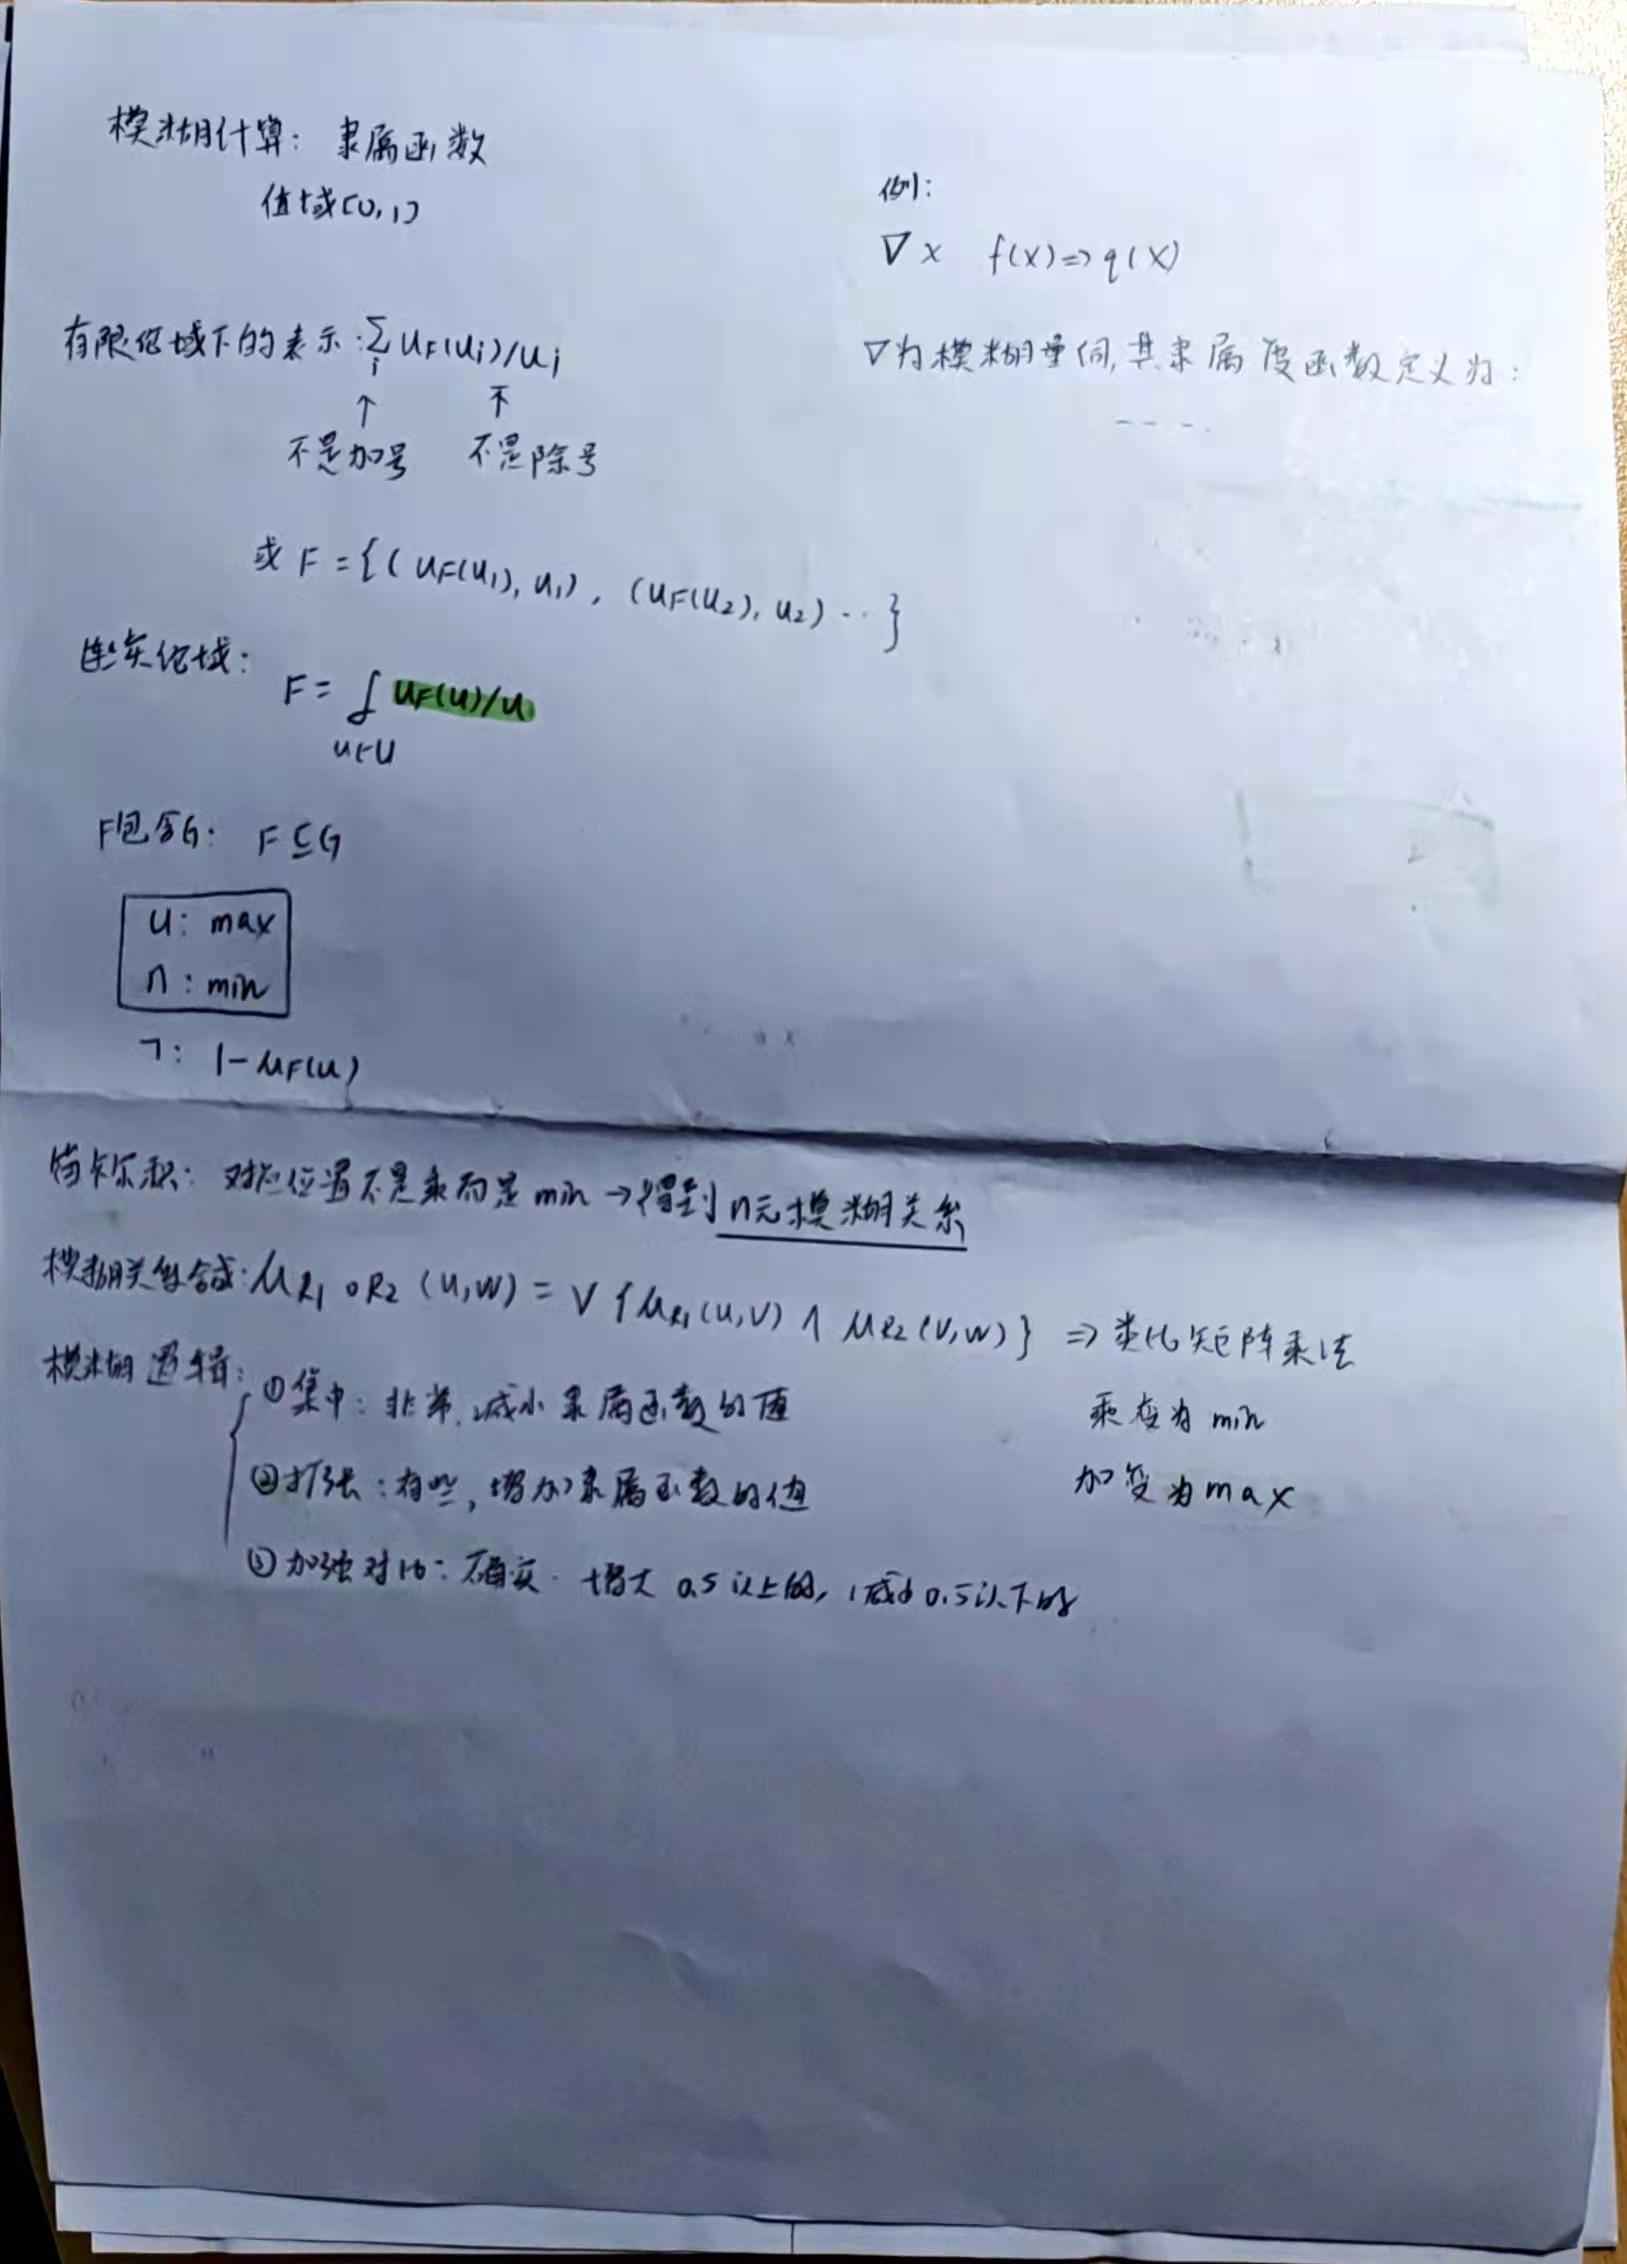 模糊计算: 隶属函数
值域[0,1]
有限论域下的表示: ∑i uF(ui)/ui
↑ ↑
不是加号 不是除号
或 F = {(uF(u1), u1), (uF(u2), u2) ··· }
连续论域:
F = ∫ uF(u)/u
u∈U
F包含G: F⊆G
∪: max
∩: min
¬: 1-μF(u)
例:
∇x f(x)=>q(x)
∇为模糊量词,其隶属度函数定义为:
----
笛卡尔积: 对应位置不是乘而是min→得到n元模糊关系
模糊关系合成: μR1∘R2(u,w) = ∨{μR1(u,v) ∧ μR2(v,w)} => 类比矩阵乘法
乘变为min
加变为max
模糊逻辑:
①集中: 非常,减小隶属函数的值
②扩张: 有些,增加隶属函数的值
③加强对比: 确实. 增大0.5以上的,减小0.5以下的